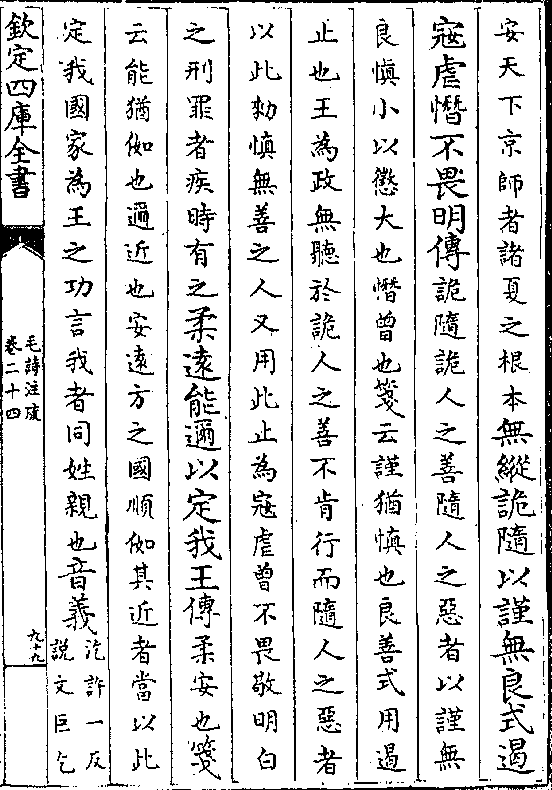 安天下京師者諸夏之根本無縱詭隨以謹無良式遏
寇虐憯不畏明傳詭隨詭人之善隨人之惡者以謹無
良慎小以懲大也憯曽也箋云謹猶慎也良善式用遏
止也王為政無聽於詭人之善不肯行而隨人之惡者
以此勑慎無善之人又用此止為寇虐曽不畏敬明白
之刑罪者疾時有之柔逺能邇以定我王傳柔安也箋
云能猶伽也邇近也安逺方之國順伽其近者當以此
定我國家為王之功言我者同姓親也音義汔許一反
説文巨乞
欽定四庫全書
毛詩注疏
卷二十四
九十九